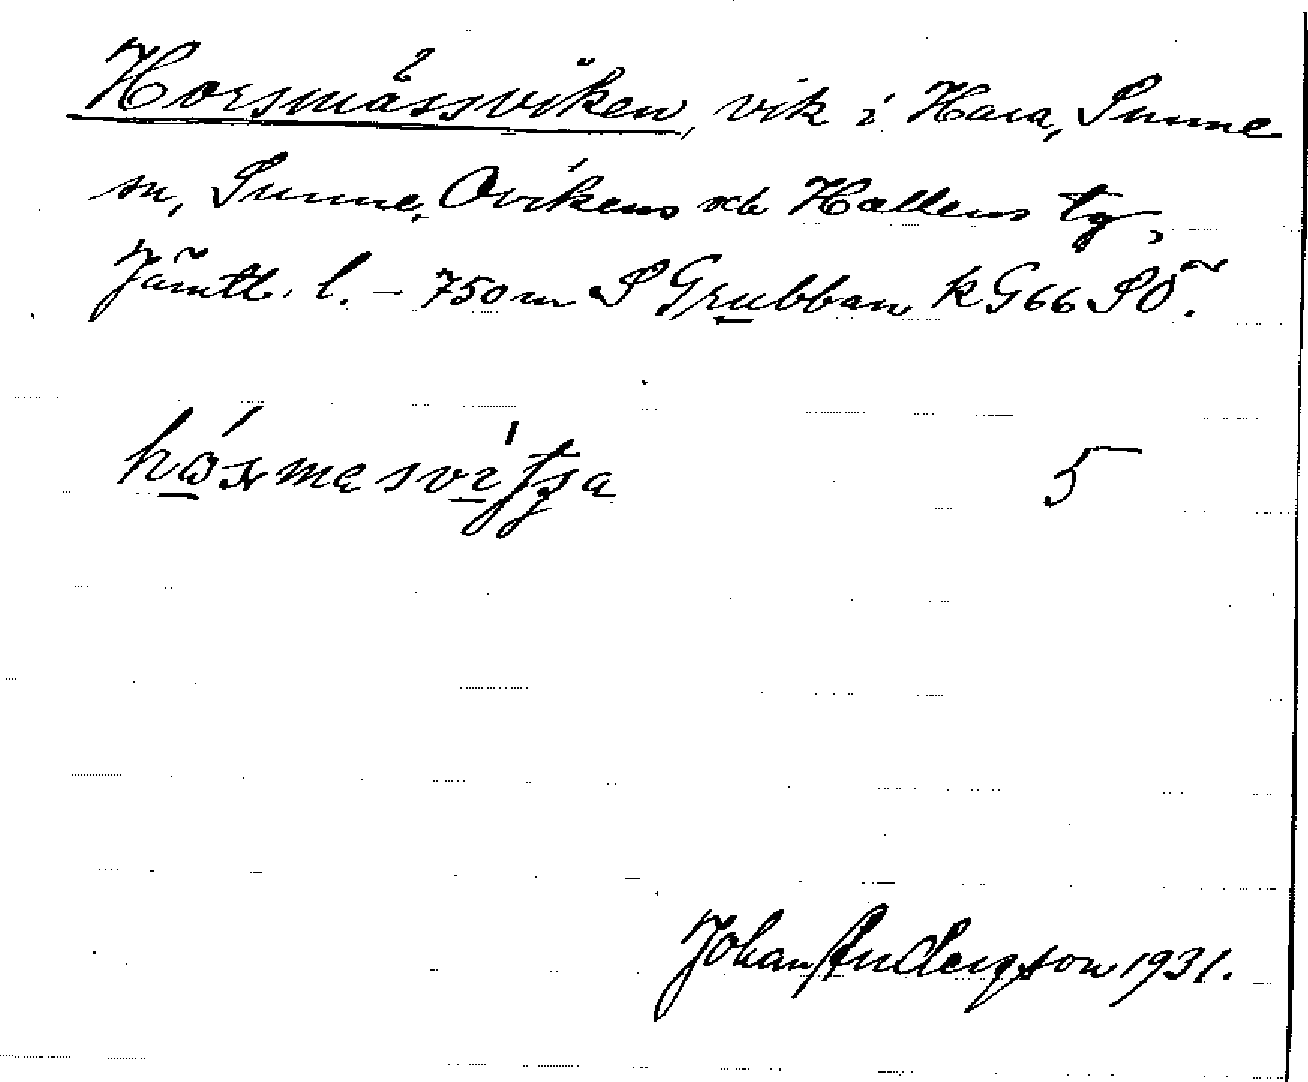 Horsmässviken, vik i Hara, Sunne
sn, Sunne, Ovikens och Hallens tg,
Jämtl. l. – 750 m S Grubban k G66 SÖ.
5
Johan Anderson 1931.